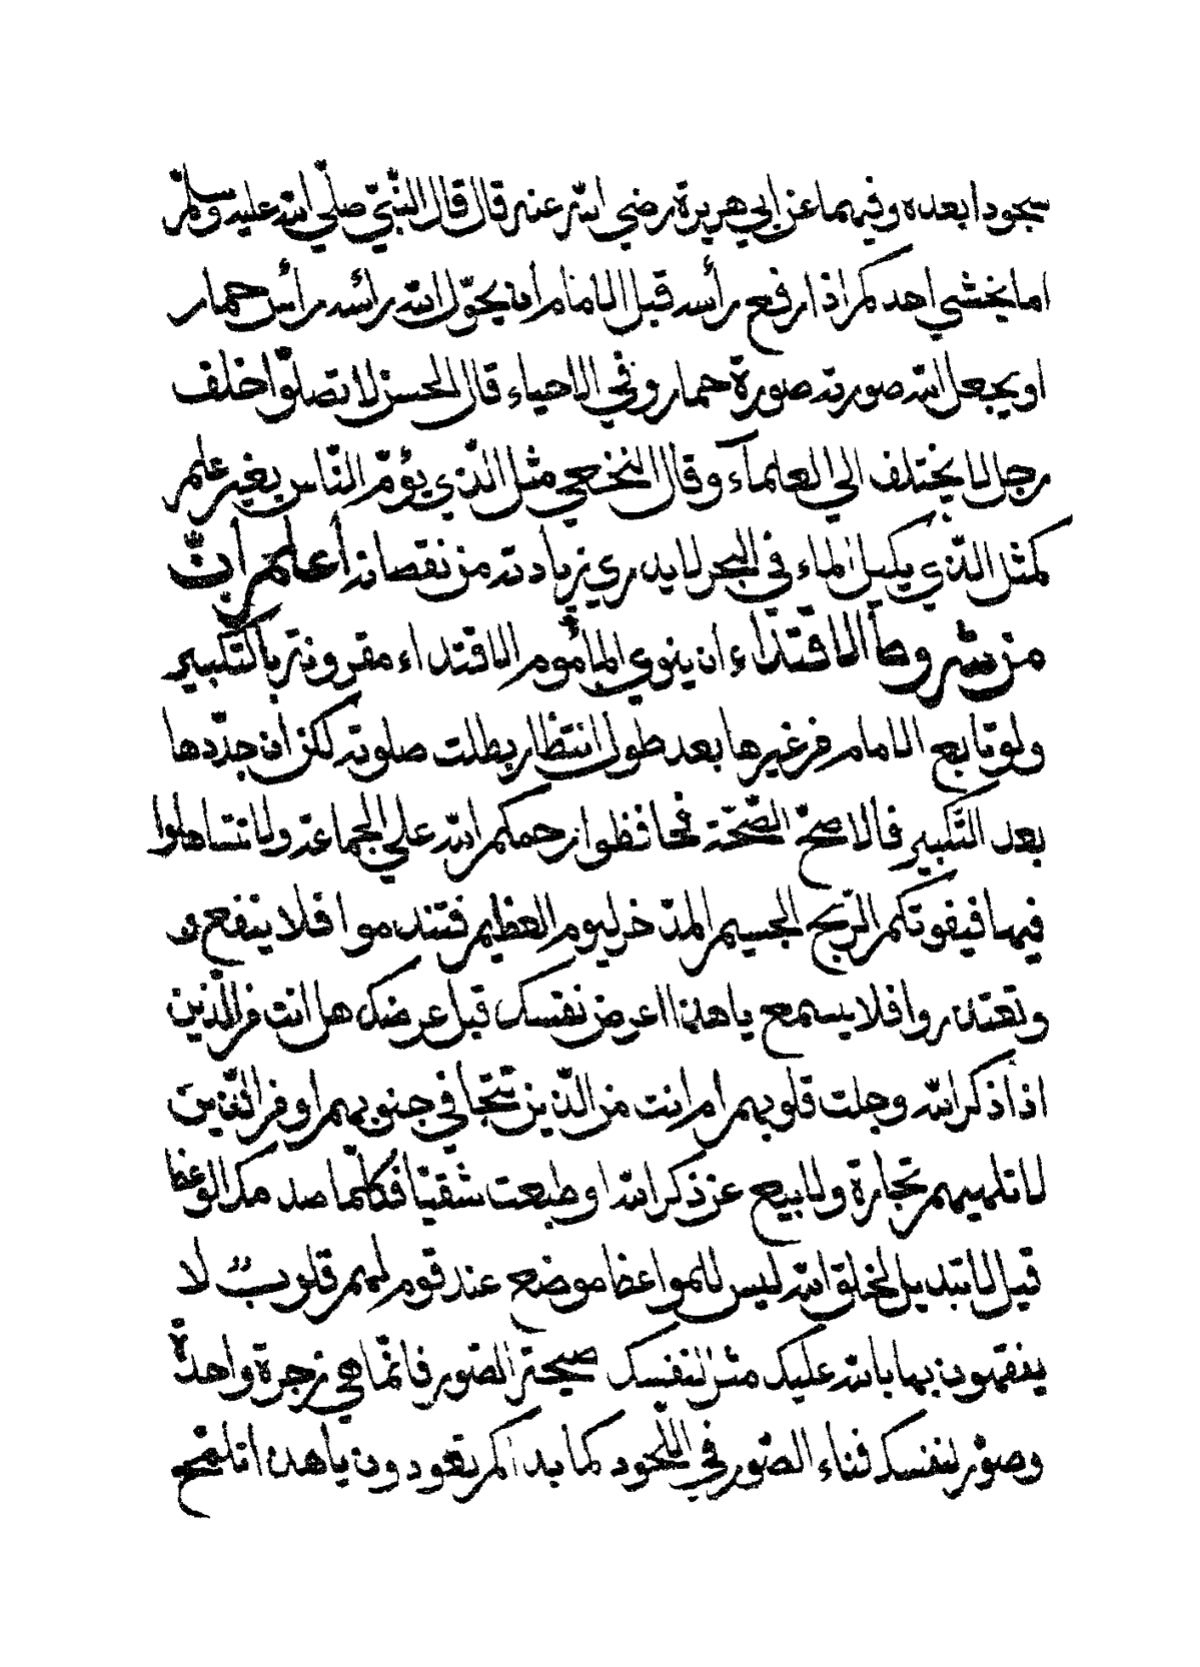 سجودا بعده وفيهما عن ابي هريرة رضي الله عنه قال قال النبيّ صلّي الله عليه وسلّم
اما يخشي احدكم اذا رفع رأسه قبل الامام أن يحوّل الله رأسه رأس حمار
او يجعل الله صورته صورة حمار وفي الاحياء قال الحسن لا تصلّوا خلف
رجل لا يختلف الي العلمآء وقال النخعي مثل الّذي يؤمّ النّاس بغير علم
كمثل الّذي يكيل الماء في البحر لا يدري زيادته من نقصانه أعلم أنّ
من شروط الاقتداء ان ينوي المأموم الاقتداء مقرونة بالتّكبير
ولو تابع الامام من غيرها بعد طول انتظار بطلت صلوته لكن ان جدّدها
بعد التّكبير فالاصحّ الصّحّة فحافظوا رحمكم الله علي الجماعة ولا تتساهلوا
فيها فيفوتكم الرّبح الجسيم المدّخر ليوم العظيم فتندموا فلا ينفع و
وتعتذروا فلا يسمع يا هذا اعرض نفسك قبل عرضك هل انت من الّذين
اذا ذكر الله وجلت قلوبهم ام انت من الّذين تتجافي جنوبهم او من الّذين
لا تلهيهم تجارة ولا بيع عن ذكر الله او طبعت شقيّا فكلّما صدمك الوعظ
قيل لا تبديل لخلق الله ليس للمواعظ موضع عند قوم لهم قلوب لا
يفقهون بها بالله عليك مثّل لنفسك صيحة الصّور فانّما هي زجرة واحدة
وصوّر لنفسك فناء الصّور في اللّحود كما بدأكم تعودون يا هذا اتلمح